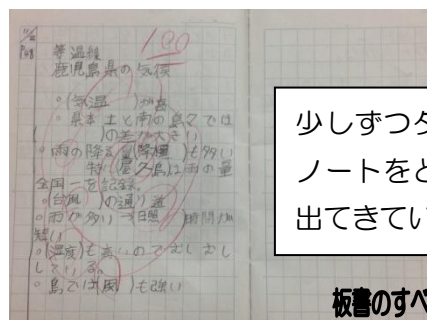 100
P108
等温線
鹿児島県の気候
。(気温)が高
。県本土と南の島々では
( )の差が大きい
。雨の降る量(降水量)も多い
特(屋久島)は雨の量
全国一を記録。
。(台風)の通り道
。雨が多い→(日照)時間が
短い
。(湿度)も高いのでむしむし
している。
。島では(風)も強い
少しずつ
ノートを
出てきてい
板書のすべ